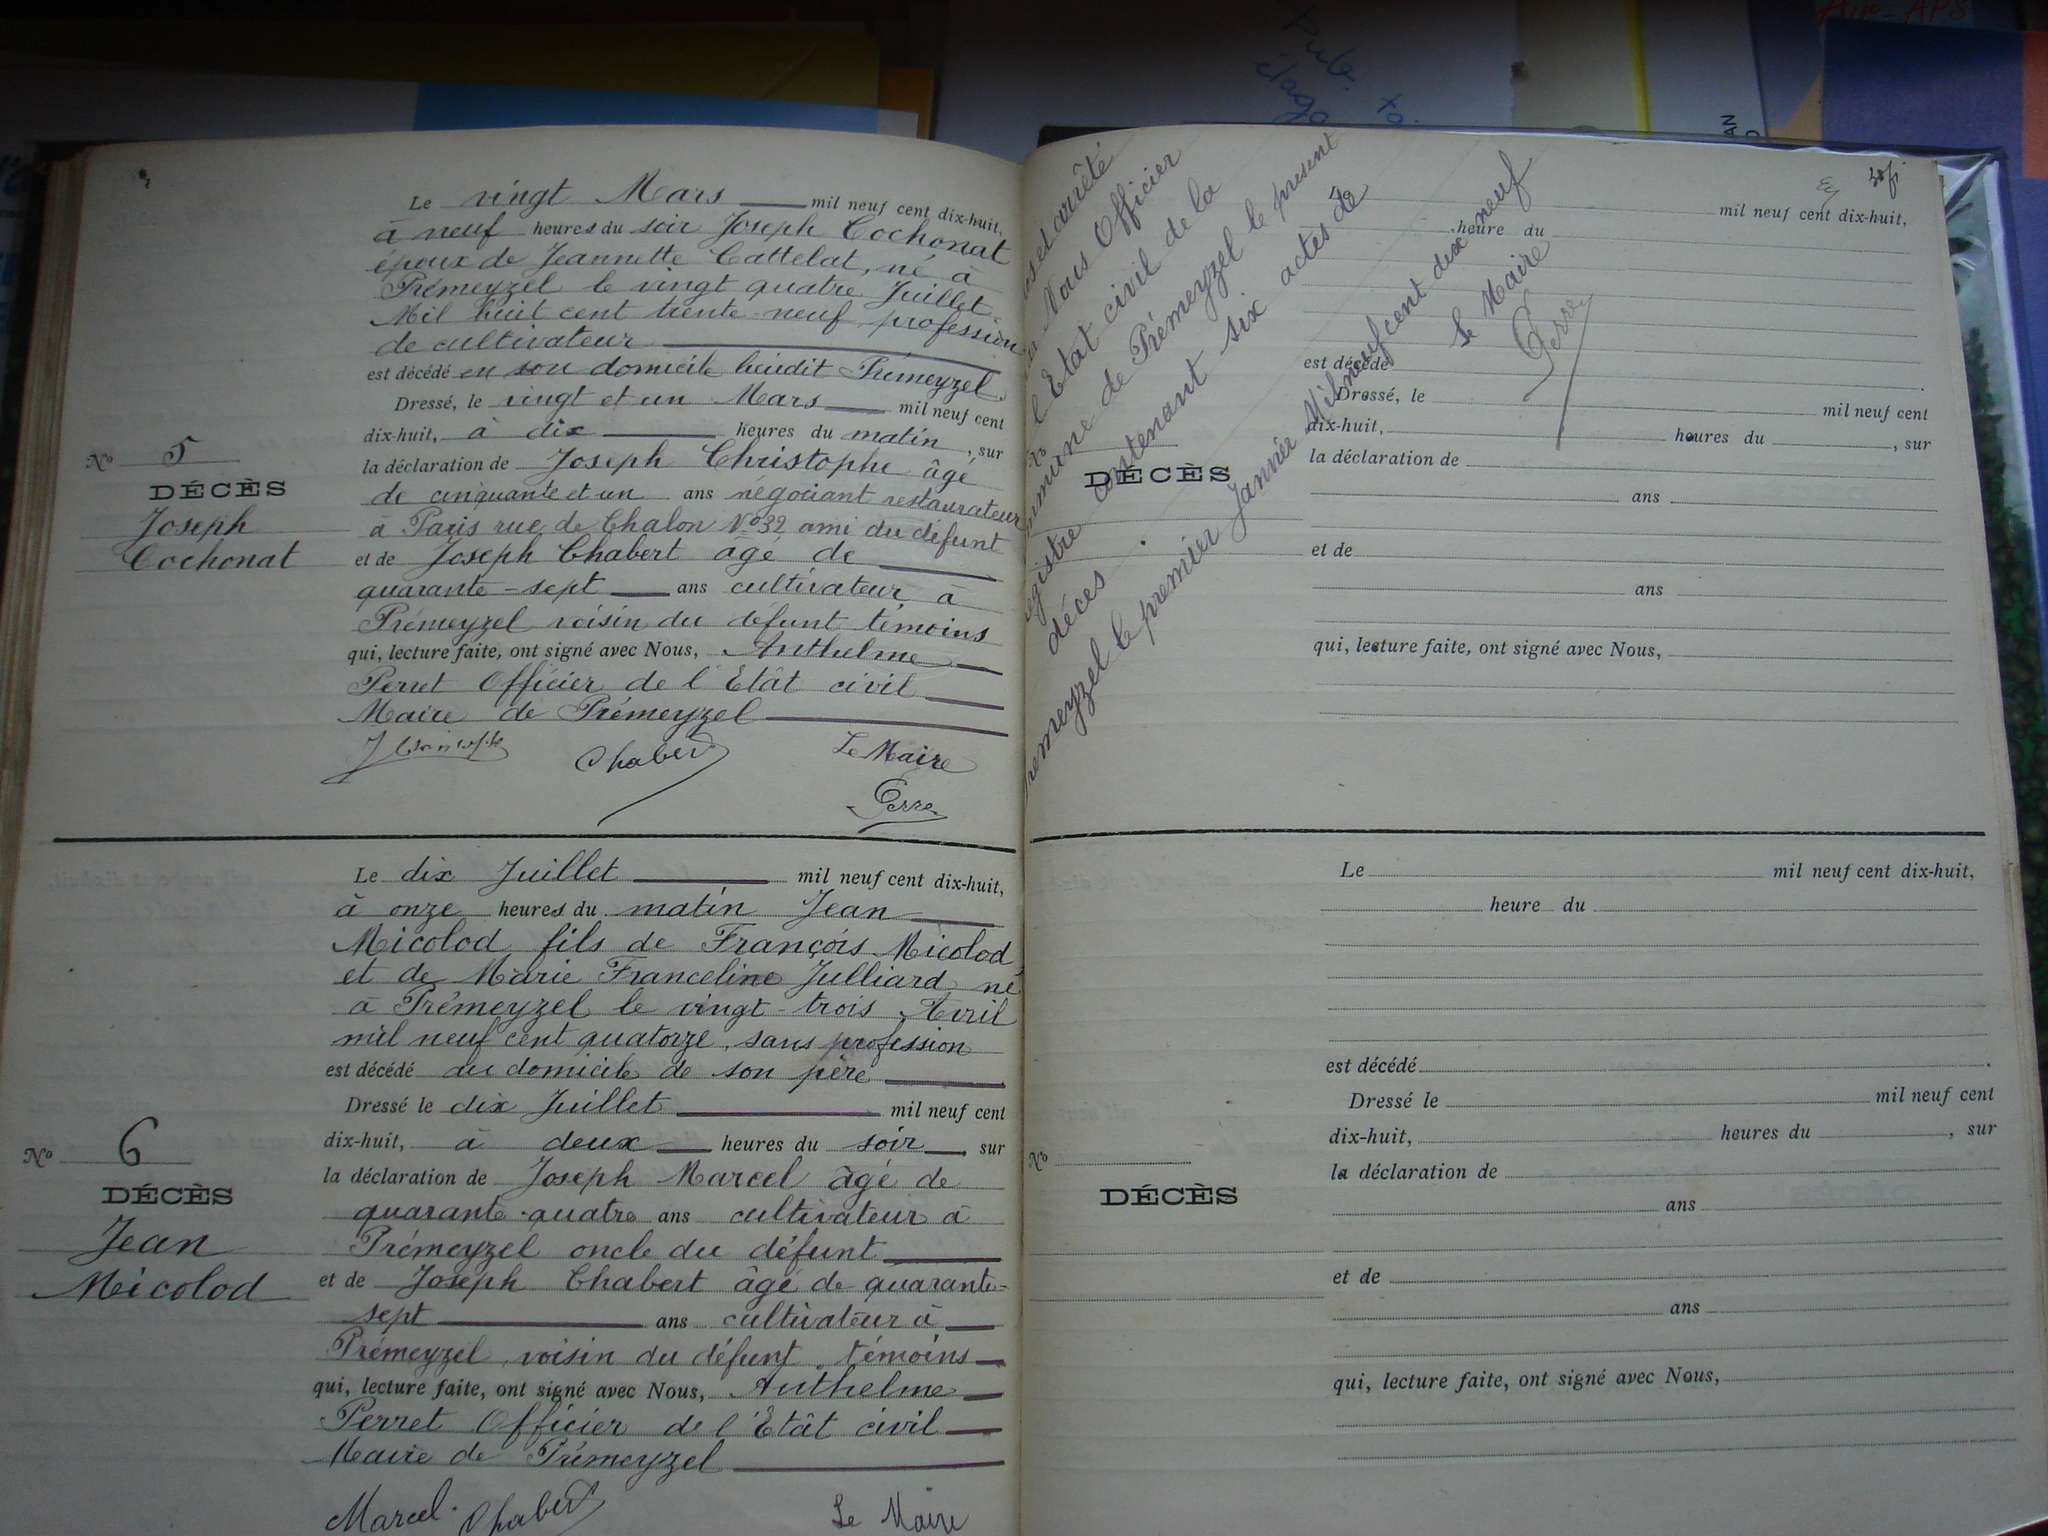 Le vingt Mars mil neuf cent dix-huit,
à neuf heures du soir Joseph Cochonat
époux de Jeannette Cattelat, né à
Prémeyzel le vingt quatre Juillet
Mil huit cent trente-neuf profession
de cultivateur
est décédé en son domicile lieudit Prémeyzel.
Dressé, le vingt et un Mars mil neuf cent
dix-huit, à dix heures du matin, sur
la déclaration de Joseph Christophe âgé
de cinquante et un ans négociant restaurateur
à Paris rue de Chalon No 32 ami du défunt
et de Joseph Chabert âgé de
quarante-sept ans cultivateur à
Prémeyzel voisin du défunt témoins
qui, lecture faite, ont signé avec Nous, Anthelme
Perret Officier de l'Etât civil
Maire de Prémeyzel
No 5
DÉCÈS
Joseph
Cochonat
Chabert
Le Maire
Perre
Le dix Juillet mil neuf cent dix-huit,
à onze heures du matin Jean
Micolod fils de François Micolod
et de Marie Franceline Julliard, né
à Prémeyzel le vingt-trois Avril
mil neuf cent quatorze, sans profession
est décédé au domicile de son père
Dressé le dix Juillet mil neuf cent
dix-huit, à deux heures du soir, sur
la déclaration de Joseph Marcel âgé de
quarante-quatre ans cultivateur à
Prémeyzel oncle du défunt
et de Joseph Chabert âgé de quarante-
sept ans cultivateur à
Prémeyzel voisin du défunt témoins
qui, lecture faite, ont signé avec Nous, Anthelme
Perret Officier de l'Etât civil
Maire de Prémeyzel
No 6
DÉCÈS
Jean
Micolod
Marcel Chabert Le Maire
et arrêté
Nous Officier
l'Etat civil de la
mmune de Prémeyzel le présent
egistre contenant six actes de
décès
remeyzel le premier Janvier Mil neuf cent dix neuf
Le Maire
Perre
mil neuf cent dix-huit,
heure du
est décédé
Dressé, le mil neuf cent
dix-huit, heures du , sur
la déclaration de
ans
et de
ans
qui, lecture faite, ont signé avec Nous,
No
DÉCÈS
Le mil neuf cent dix-huit,
heure du
est décédé
Dressé le mil neuf cent
dix-huit, heures du , sur
la déclaration de
ans
et de
ans
qui, lecture faite, ont signé avec Nous,
No
DÉCÈS